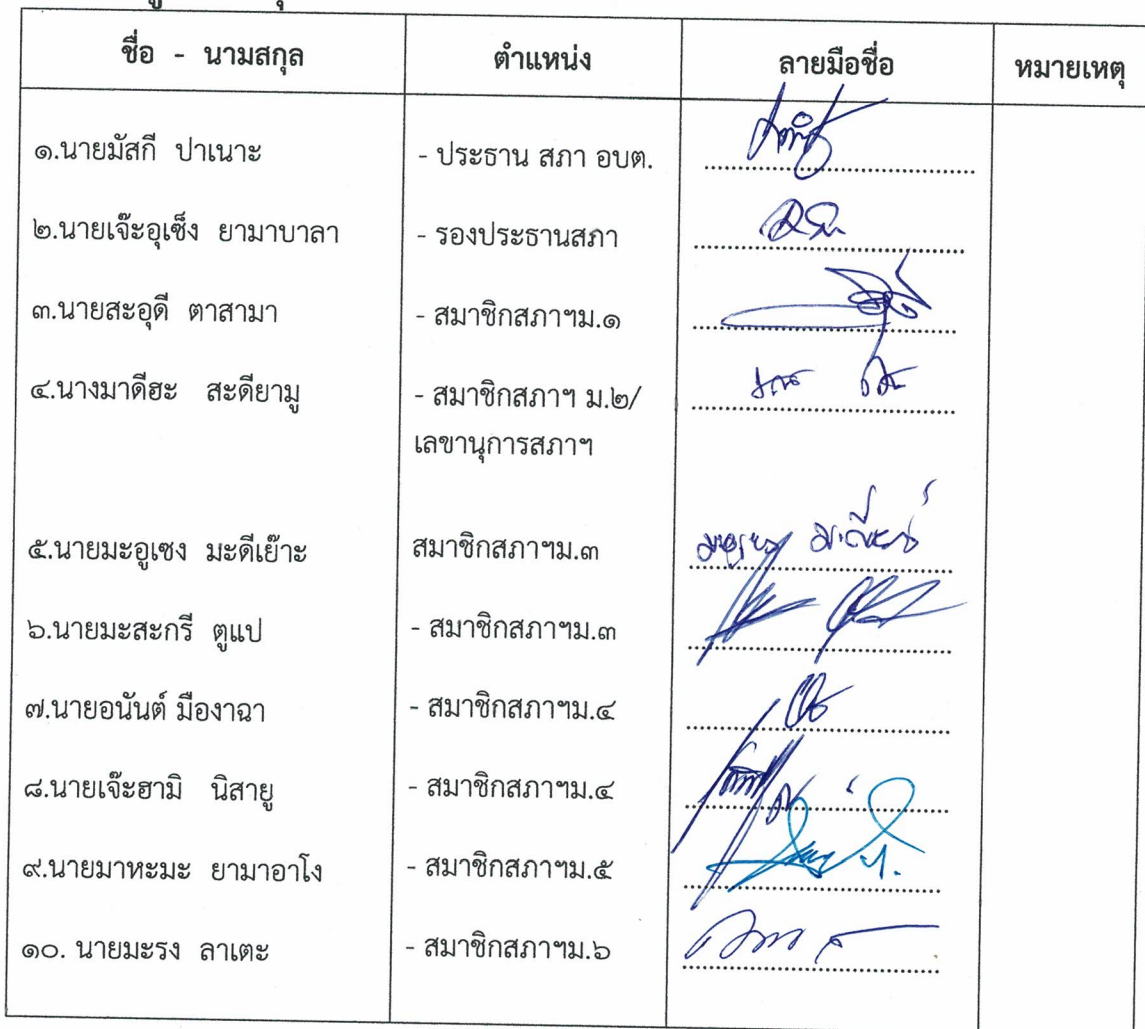 ชื่อ - นามสกุล ตำแหน่ง ลายมือชื่อ หมายเหตุ
๑.นายมัสกี ปาเนาะ - ประธาน สภา อบต.
๒.นายเจ๊ะอุเซ็ง ยามาบาลา - รองประธานสภา
๓.นายสะอุดี ตาสามา - สมาชิกสภาฯม.๑
๔.นางมาดีฮะ สะดียามู - สมาชิกสภาฯ ม.๒/
เลขานุการสภาฯ
๕.นายมะอูเซง มะดีเย๊าะ สมาชิกสภาฯม.๓
๖.นายมะสะกรี ตูแป - สมาชิกสภาฯม.๓
๗.นายอนันต์ มีองาฉา - สมาชิกสภาฯม.๔
๘.นายเจ๊ะฮามิ นิสายู - สมาชิกสภาฯม.๔
๙.นายมาหะมะ ยามาอาโง - สมาชิกสภาฯม.๕
๑๐. นายมะรง ลาเตะ - สมาชิกสภาฯม.๖